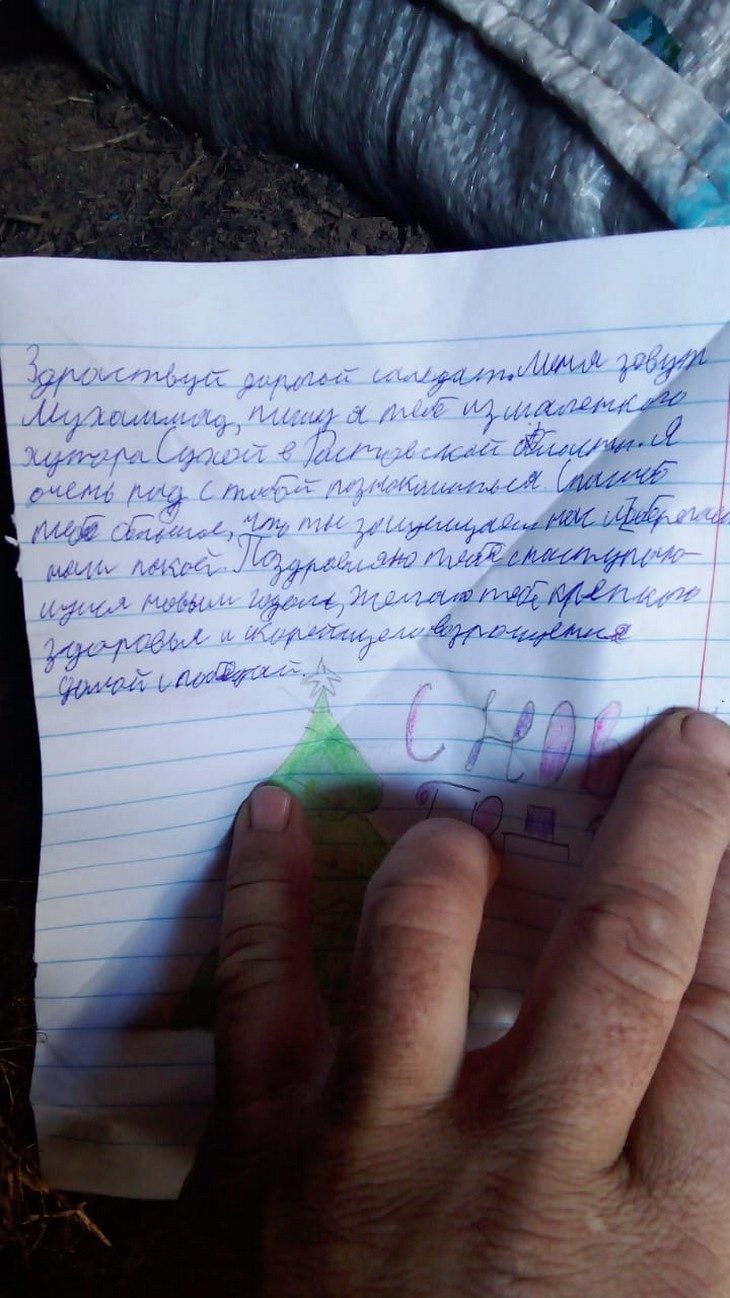 Здраствуй дорогой саледат. Меня завут
Мухаммад, пишу я тебе из маленкого
хутора Сухой в Растовской области. Я
очень рад с тобой познакомиться. Спасибо
тебе большое, что ты защищаешь нас и оберегаеш
наш покой. Поздровляю тебя с наступаю-
щимя новым годом, желаю тебе крепкого
здоровья и скорейщего возрощения
домой с победой.
С НОВ
ГО